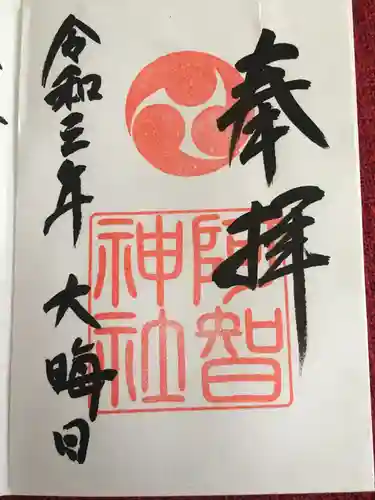 奉拝
阿智
神社
令和三年 大晦日